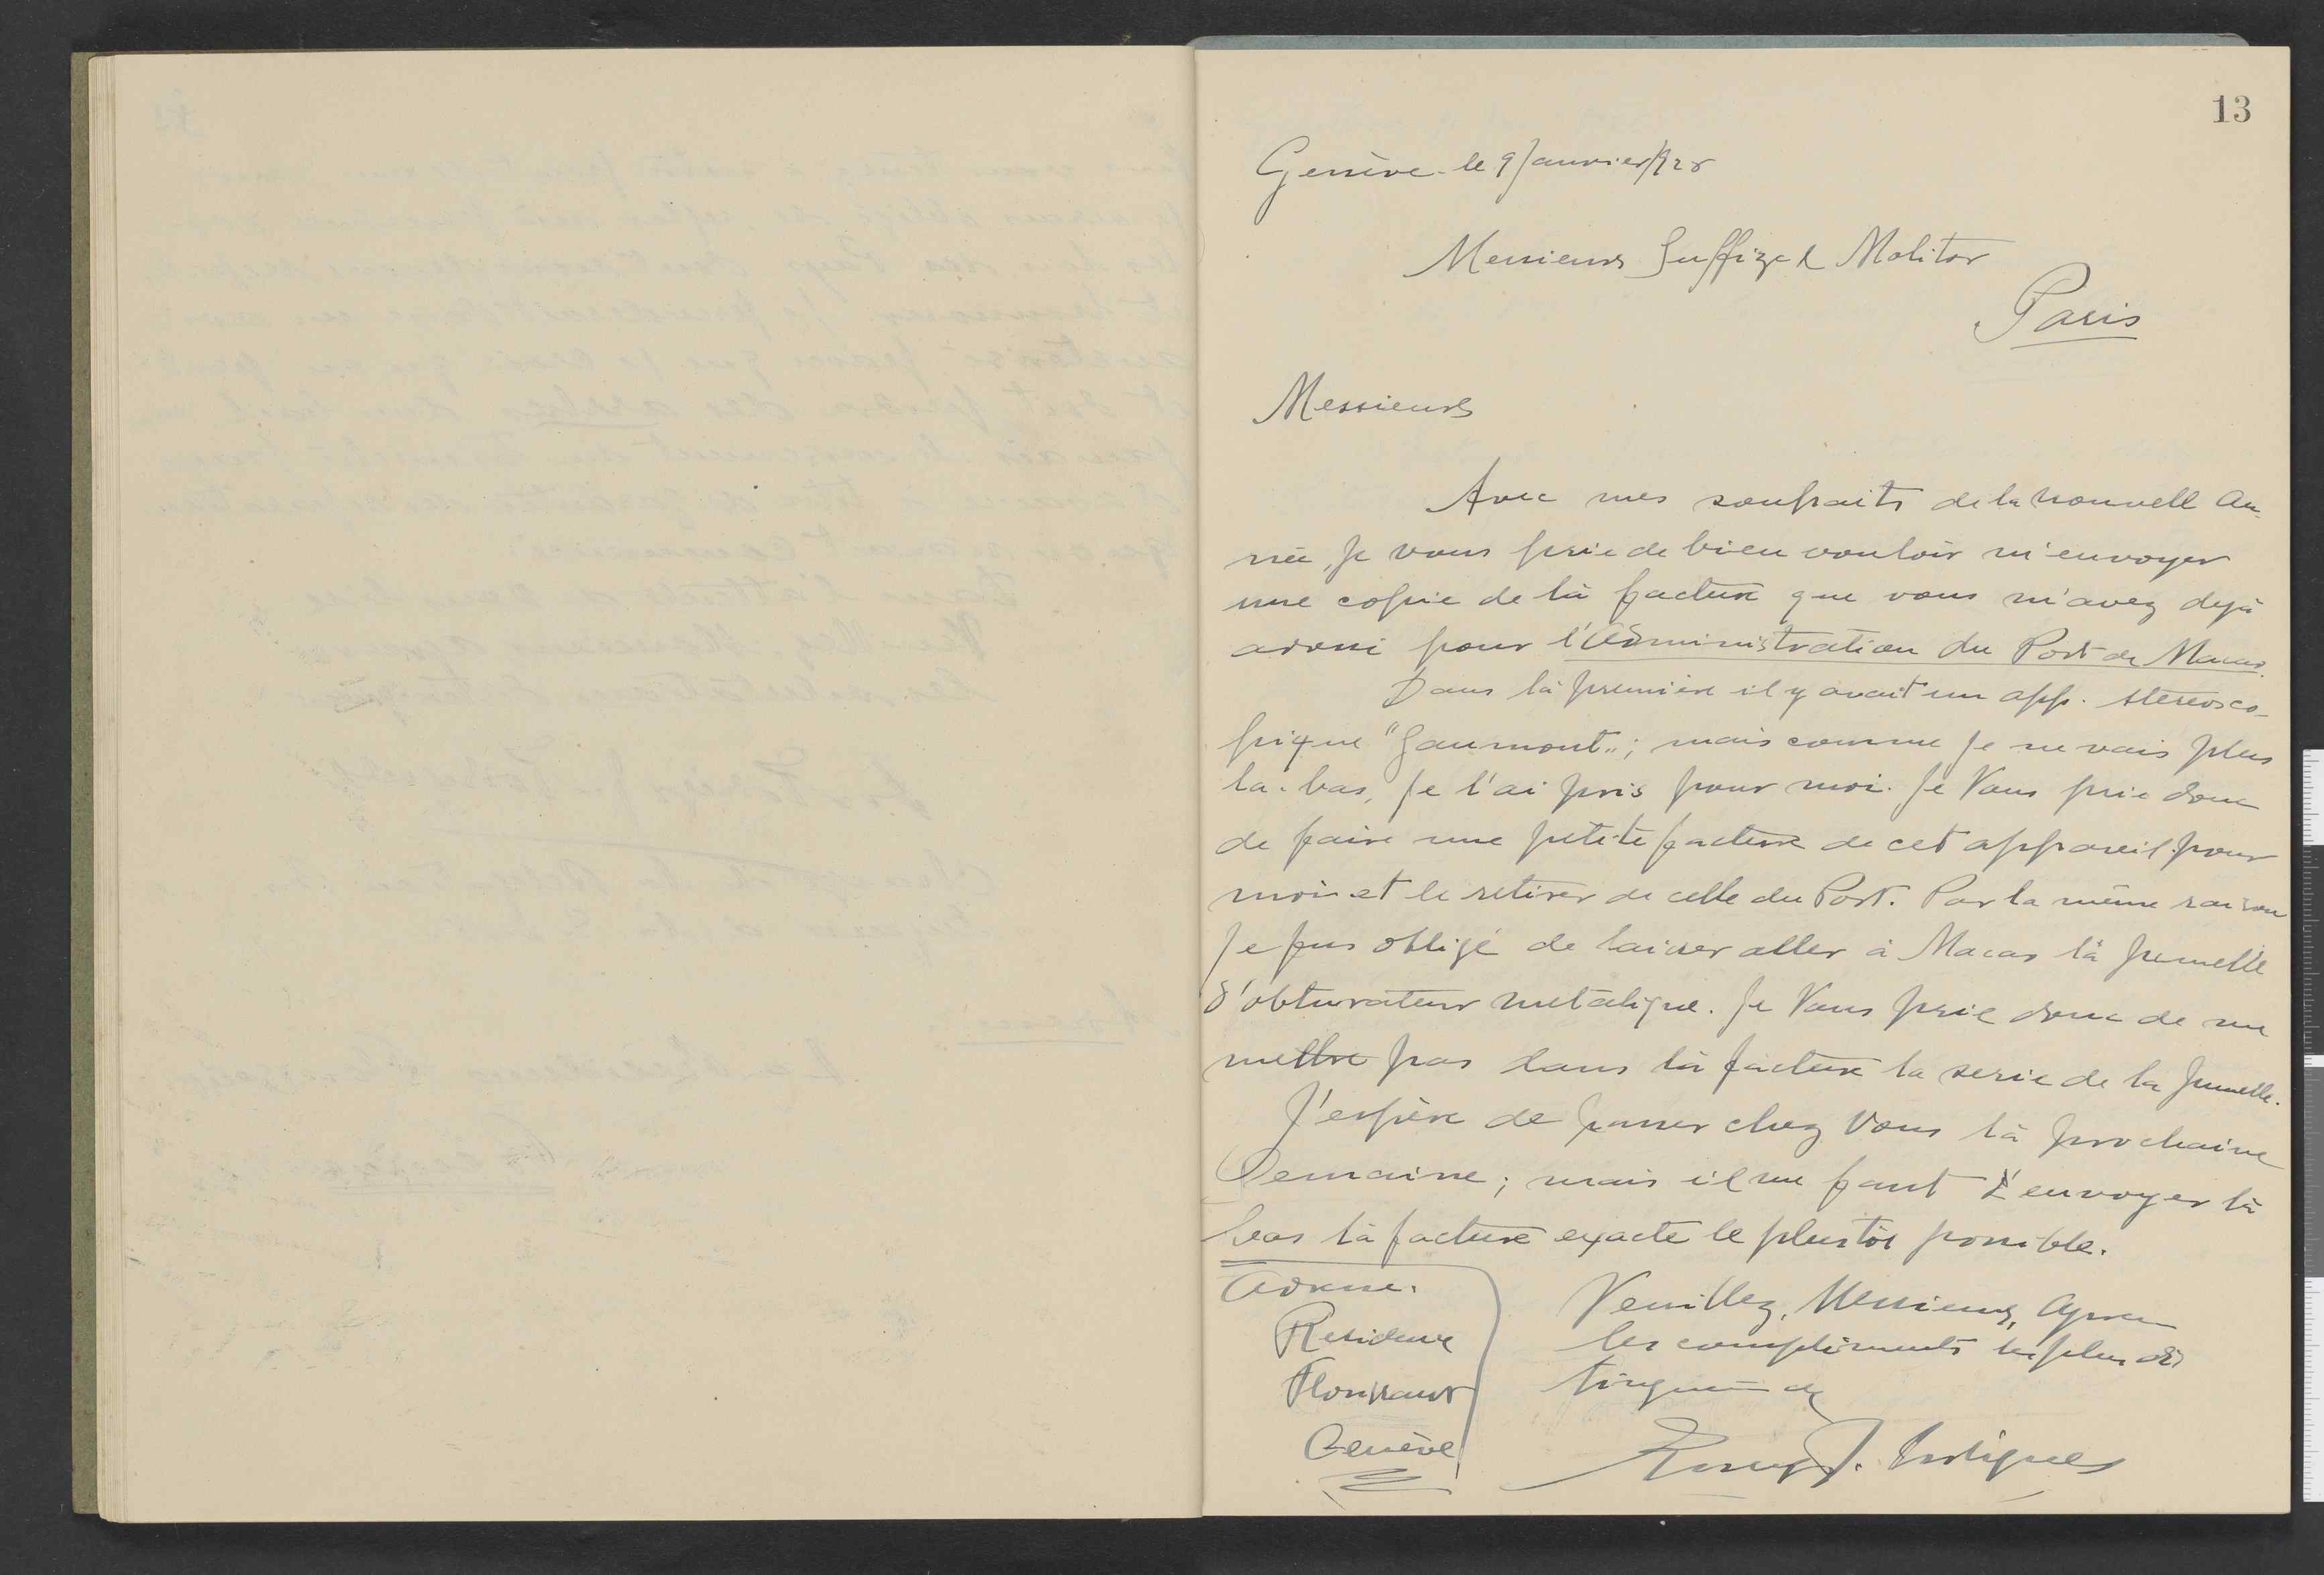 13
Genève le 9 Janvier/928
Messieurs Suffize & Molitor
Paris
Messieurs
Avec mes souhaits de la nouvell an-
née, Je vous prie de bien vouloir m'envoyer
une copie de là facture que vous m'avez dejà
pour l'Administration du Port de Macao.
Dans là première il y avait un app. stereosco-
pique "Gaumont"; mais comme Je ne vais plus
la-bas, Je l'ai pris pour moi. Je Vous prie donc
de faire une petite facture de cet appareil pour
moi et le retirer de celle du Port. Par la même raison
Je fus obligé de laisser aller à Macao là Jumelle
d'obturateur metalique. Je Vous prie donc de ne
mettre pas dans là facture la serie de la Jumelle.
J'espère de passer chez Vous là prochaine
Semaine; mais il me faut d'envoyer là
bas là facture exacte le plustôt possible.
Veuillez, Messieurs, agréer
les compliments les plus dis
tingués de
Adresse.
Residence
Florissant
Genève